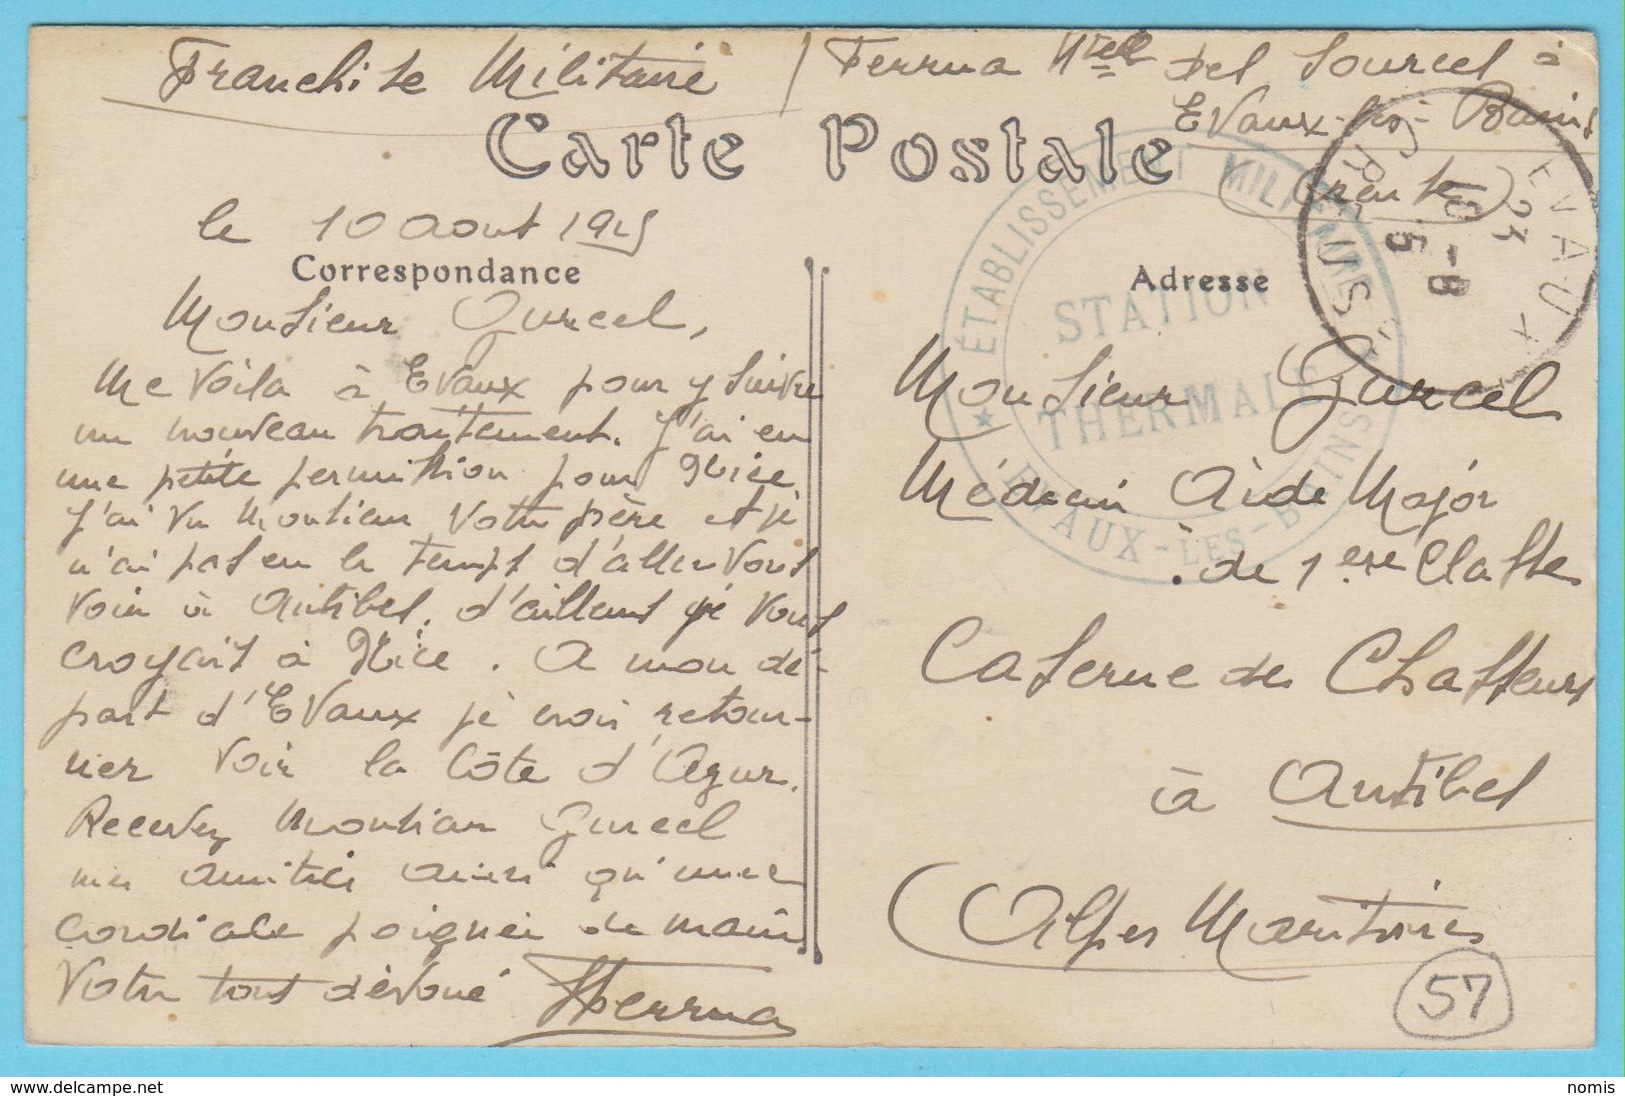 Franchise Militaire / Ferrua Hôtel des Sources à
Evaux-les-Bains
(Creuse)
Carte Postale
le 10 Aout 1915
Correspondance
Monsieur Gurcel,
Me voila à Evaux pour y suivre
un nouveau traitement. J'ai eu
une petite permission pour Nice
J'ai vu Monsieur Votre père et je
n'ai pas eu le temps d'aller vous
voir à Antibes. d'ailleurs je vous
croyais à Nice. A mon dé-
part d'Evaux je crois retour-
ner voir la Côte d'Azur.
Recevez Monsieur Gurcel
mes amitiés ainsi qu'une
cordiale poignée de main
Votre tout dévoué Ferrua
Adresse
Monsieur Gurcel
Médecin Aide Major
de 1ere Classe
Caserne des Chasseurs
à Antibes
(Alpes Maritimes
57
ÉTABLISSEMENT MILITAIRE
STATION
THERMALE
EVAUX-LES-BAINS
EVAUX
23
10-8
15
CREUSE
delcampe.net
nomis